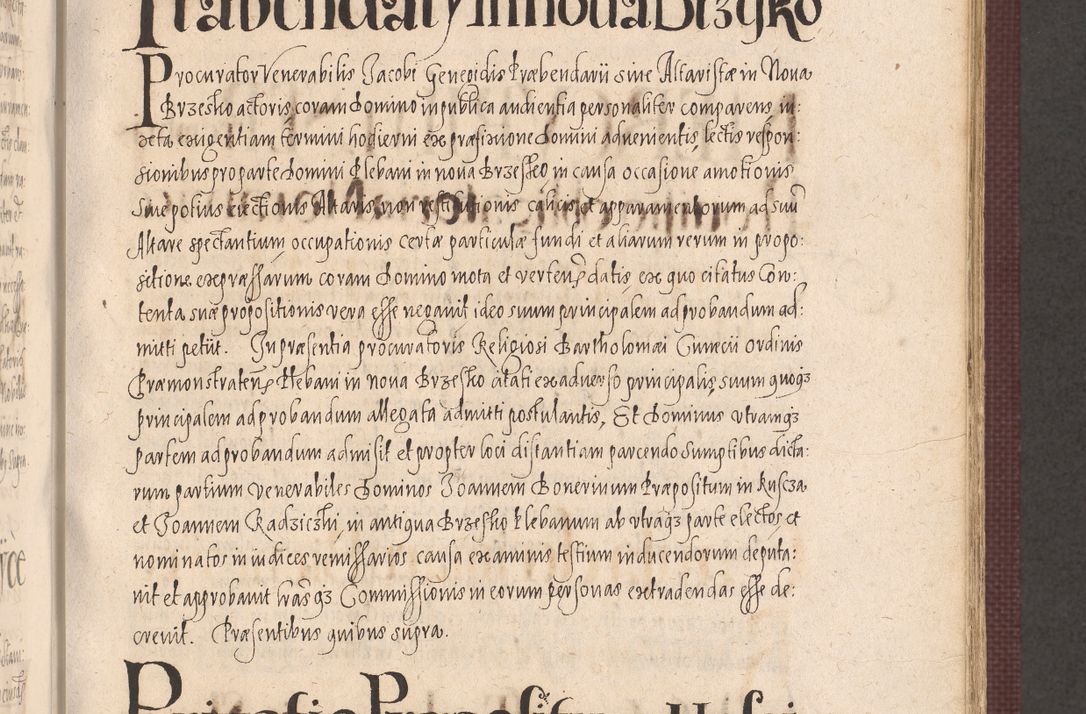 Prabendary in noua Brzesko
Procurator Venerabilis Jacobi Genegidis Præbendarii siue Altaristæ in Noua
Brzesko actoris coram domino in publica audientia personaliter comparens in:
xeta exigentiam termini hodierni ex præfixione domini aduenientis, lectis respon:
sionibus pro parte domini Plebani in noua Brzesko in causa occasione amotionis
siue potius eiectionis Altaris non restitutionis calicis et apparamentorum ad suū
Altare spectantium occupationis certæ particulæ fundi et aliarum rerum in propo:
sitione expræssarum coram domino mota et verteñ datis, ex quo citatus Con:
tenta suæ propositionis vera esse negauit ideo suum principalem ad probandum ad:
mitti petiit. In præsentia procuratoris Religiosi Bartholomæi Cunecii ordinis
Præmonstrateñ Plebani in noua Brzesko citati ex aduerso principalis, suum quoqȝ
principalem ad probandum allegata admitti postulantis, Et dominus vtramqȝ
partem ad probandum admisit et propter loci distantiam parcendo sumptibus dicta:
rum partium Venerabiles dominos Joannem Bonerinum Præpositum in Ruscza
et Joannem Radziczki, in antiqua Brzesko Plebanum ab vtraqȝ parte electos et
nominatos in iudices remissarios causa examinis testium inducendorum deputa:
uit et approbauit lrās qȝ Commissionis in eorum personas extradendas esse de:
creuit. Præsentibus quibus supra.